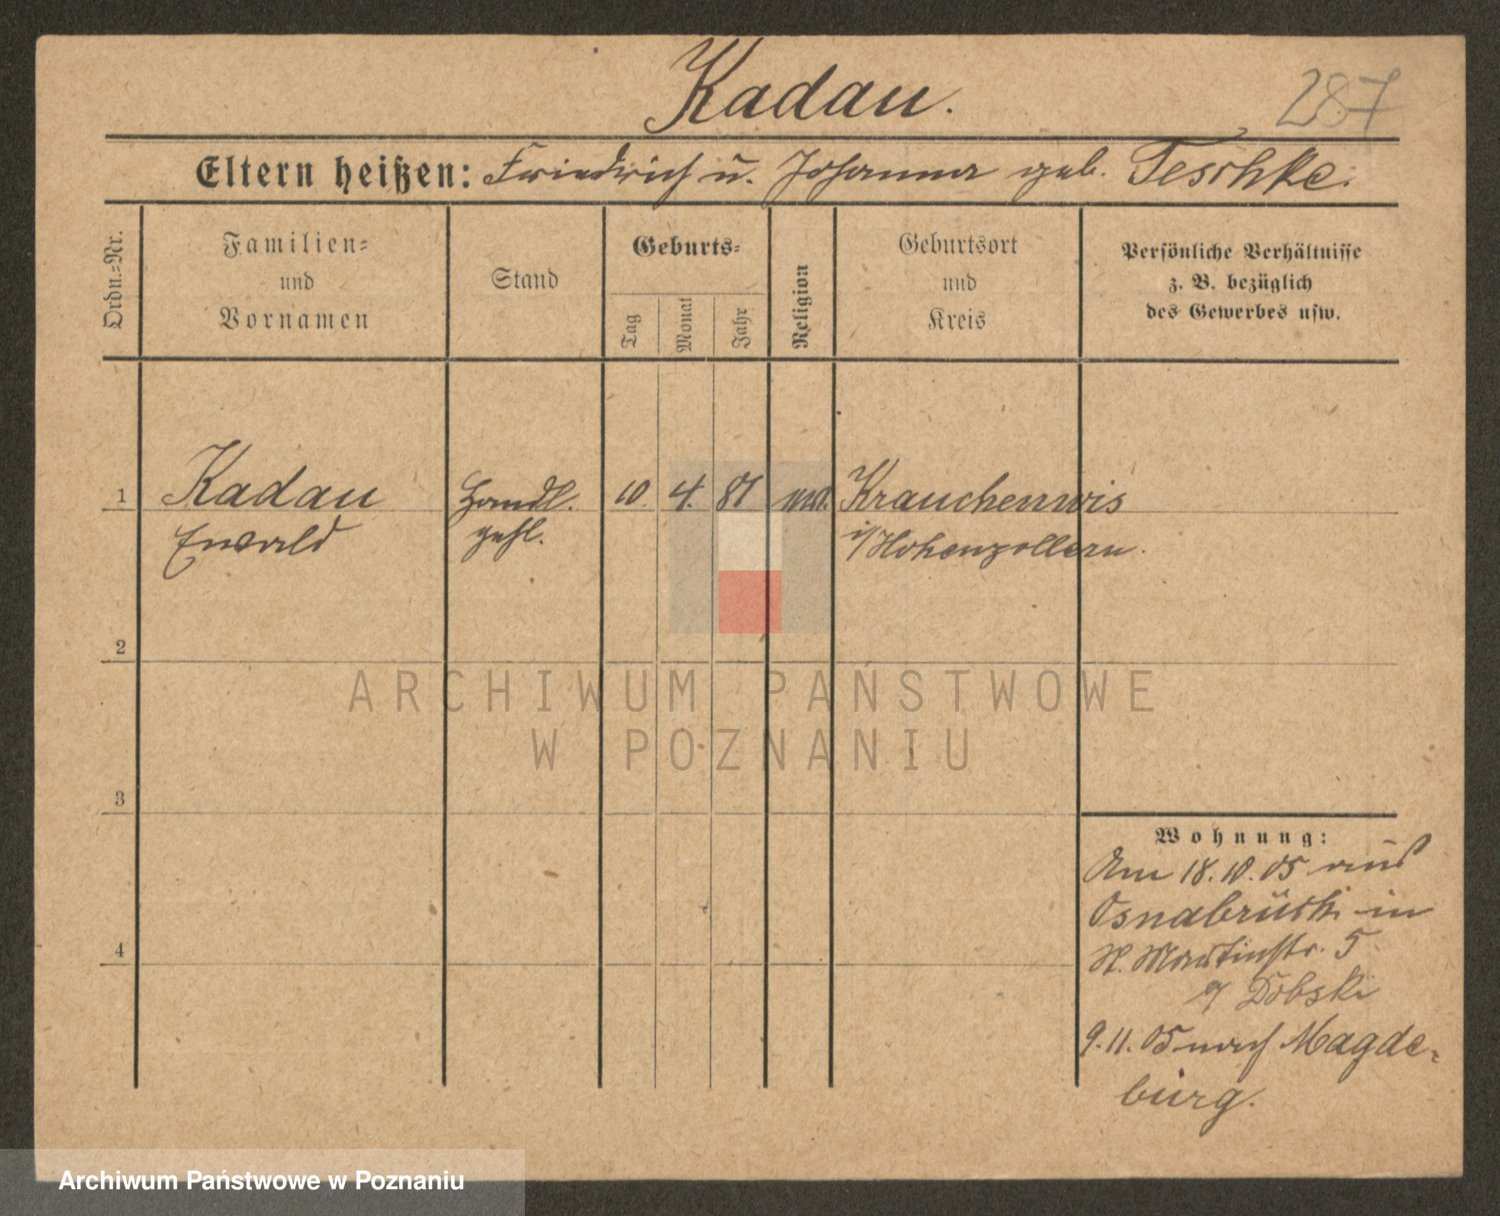 Kadau.
287
Eltern heißen: Friedrich u. Johanna geb. Teschke.
Ordn.-Nr.
Familien-
und
Vornamen
Stand
Geburts-
Tag
Monat
Jahr
Religion
Geburtsort
und
Kreis
Persönliche Verhältnisse
z. B. bezüglich
des Gewerbes usw.
1 Kadau Handl. 10. 4. 81 Krauchenwis
Ewald gehl. i/Hohenzollern.
2
ARCHIWUM PAŃSTWOWE
W POZNANIU
3
Wohnung:
Am 18.10.05 aus
Osnabrück in
St. Martinstr. 5
Dobski
4
9.11.05 nach Magde-
burg.
Archiwum Państwowe w Poznaniu